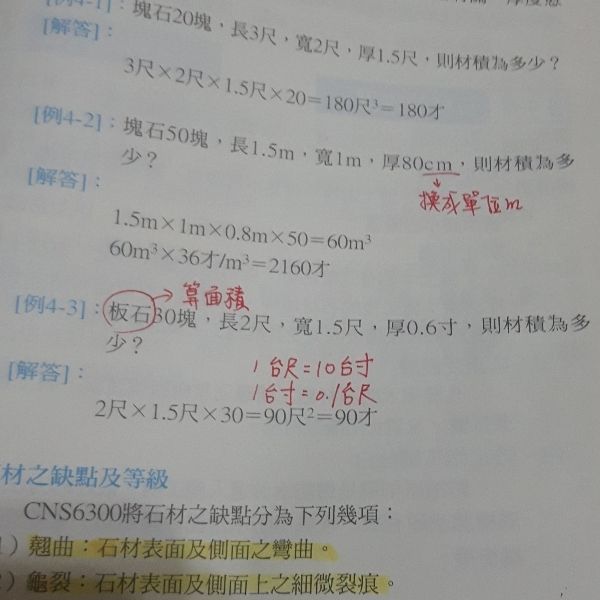 [例4-1]：塊石20塊，長3尺，寬2尺，厚1.5尺，則材積為多少？
[解答]：
3尺×2尺×1.5尺×20＝180尺³＝180才
[例4-2]：塊石50塊，長1.5m，寬1m，厚80cm，則材積為多
少？
換成單位m
[解答]：
1.5m×1m×0.8m×50＝60m³
60m³×36才/m³＝2160才
算面積
[例4-3]：板石30塊，長2尺，寬1.5尺，厚0.6寸，則材積為多
少？
1台尺=10台寸
[解答]：
1台寸=0.1台尺
2尺×1.5尺×30＝90尺²＝90才
材之缺點及等級
CNS6300將石材之缺點分為下列幾項：
1）翹曲：石材表面及側面之彎曲。
2）龜裂：石材表面及側面上之細微裂痕。